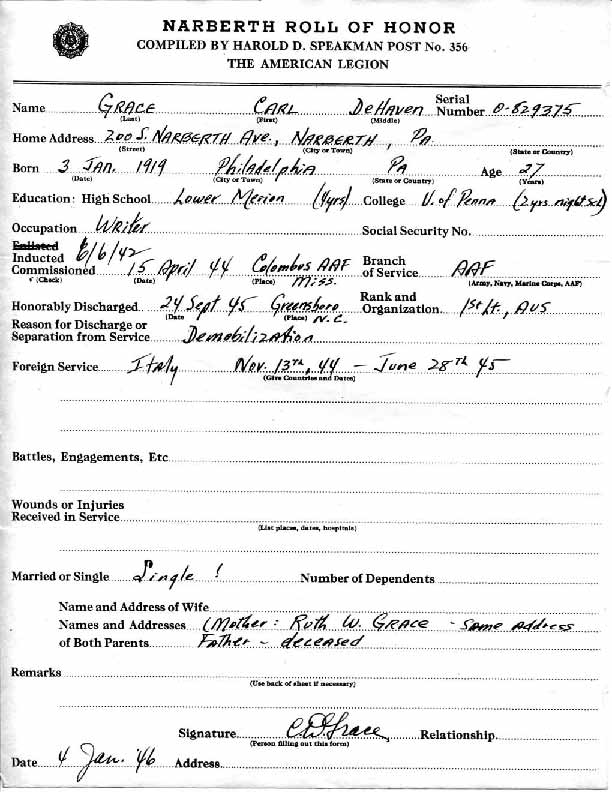 NARBERTH ROLL OF HONOR
COMPILED BY HAROLD D. SPEAKMAN POST No. 356
THE AMERICAN LEGION
Name GRACE CARL DeHaven Serial Number O-829375
(Last) (First) (Middle)
Home Address 200 S. NARBERTH Ave., NARBERTH, PA.
(Street) (City or Town) (State or Country)
Born 3 JAN. 1919 Philadelphia PA Age 27
(Date) (City or Town) (State or Country) (Years)
Education: High School Lower Merion (4yrs) College U. of Penna (2 yrs. night Scl)
Occupation Writer Social Security No.
Enlisted
Inducted 6/6/42
Commissioned 15 April 44 Columbus AAF Miss. Branch of Service AAF
✓ (Check) (Date) (Place) (Army, Navy, Marine Corps, AAF)
Honorably Discharged 24 Sept 45 Greensboro N.C. Rank and Organization 1st Lt., AUS
(Date (Place)
Reason for Discharge or
Separation from Service Demobilization
Foreign Service Italy Nov. 13th, 44 - June 28th 45
(Give Countries and Dates)
Battles, Engagements, Etc
Wounds or Injuries
Received in Service
(List places, dates, hospitals)
Married or Single Single! Number of Dependents
Name and Address of Wife
Names and Addresses (Mother: Ruth W. GRACE - Same Address
of Both Parents Father - deceased
Remarks
(Use back of sheet if necessary)
Signature CDGrace Relationship
(Person filling out this form)
Date 4 Jan. '46 Address